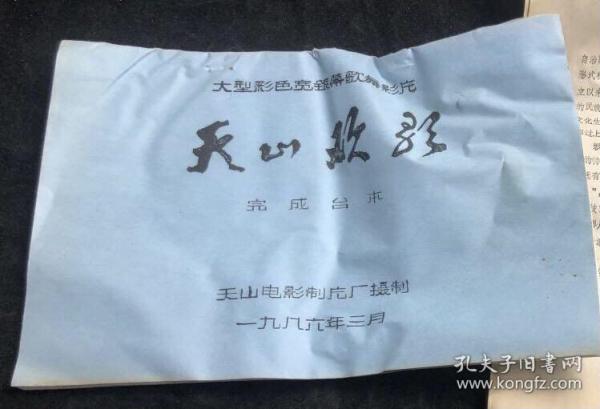 大型彩色宽银幕歌舞影片
天山欢歌
完成台本
天山电影制片厂摄制
一九八六年三月
自治
形式
立以来
的民族
文化生
孔夫子旧书网
www.kongfz.com